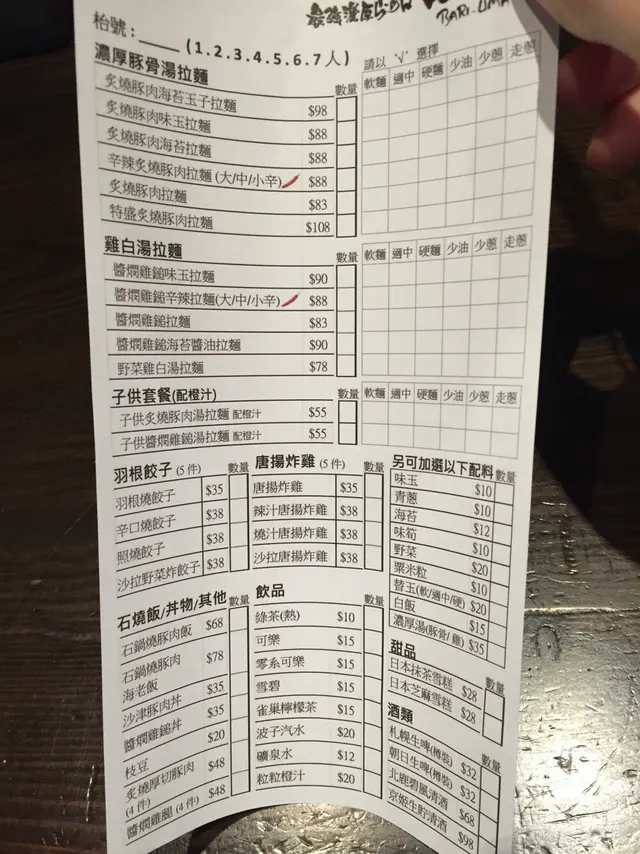 BARI-UMA
枱號：____ (1.2.3.4.5.6.7人)
請以 '√' 選擇
濃厚豚骨湯拉麵 數量 軟麵 適中 硬麵 少油 少蔥 走蔥
炙燒豚肉海苔玉子拉麵 $98
炙燒豚肉味玉拉麵 $88
炙燒豚肉海苔拉麵 $88
辛辣炙燒豚肉拉麵 (大/中/小辛) $88
炙燒豚肉拉麵 $83
特盛炙燒豚肉拉麵 $108
雞白湯拉麵 數量 軟麵 適中 硬麵 少油 少蔥 走蔥
醬燜雞鎚味玉拉麵 $90
醬燜雞鎚辛辣拉麵(大/中/小辛) $88
醬燜雞鎚拉麵 $83
醬燜雞鎚海苔醬油拉麵 $90
野菜雞白湯拉麵 $78
子供套餐(配橙汁) 數量 軟麵 適中 硬麵 少油 少蔥 走蔥
子供炙燒豚肉湯拉麵 配橙汁 $55
子供醬燜雞鎚湯拉麵 配橙汁 $55
羽根餃子 (5 件) 數量
羽根燒餃子 $35
辛口燒餃子 $38
照燒餃子 $38
沙拉野菜炸餃子 $38
唐揚炸雞 (5 件) 數量
唐揚炸雞 $35
辣汁唐揚炸雞 $38
燒汁唐揚炸雞 $38
沙拉唐揚炸雞 $38
另可加選以下配料 數量
味玉 $10
青蔥 $10
海苔 $12
味筍 $10
野菜 $20
粟米粒 $10
替玉(軟/適中/硬) $20
白飯 $15
濃厚湯(豚骨/雞) $35
石燒飯/丼物/其他 數量
石鍋燒豚肉飯 $68
石鍋燒豚肉
海老飯 $78
沙津豚肉丼 $35
醬燜雞鎚丼 $35
枝豆 $20
炙燒厚切豚肉
(4 件) $48
醬燜雞腿 (4 件) $48
飲品 數量
綠茶(熱) $10
可樂 $15
零系可樂 $15
雪碧 $15
雀巢檸檬茶 $15
波子汽水 $20
礦泉水 $12
粒粒橙汁 $20
甜品 數量
日本抹茶雪糕 $28
日本芝麻雪糕 $28
酒類 數量
札幌生啤(樽裝) $32
朝日生啤(樽裝) $32
北鹿碧風清酒 $68
京姬生貯清酒 $98